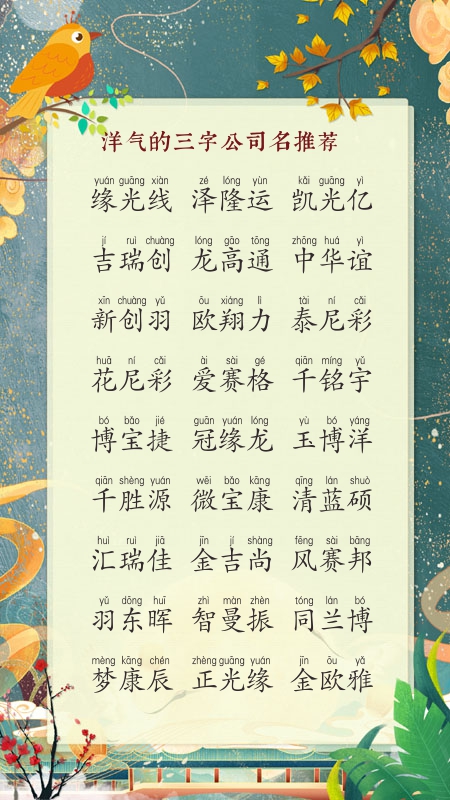 洋气的三字公司名推荐
yuán guāng xiàn zé lóng yùn kǎi guāng yì
缘光线 泽隆运 凯光亿
jí ruì chuàng lóng gāo tōng zhōng huá yì
吉瑞创 龙高通 中华谊
xīn chuàng yǔ ōu xiáng lì tài ní cǎi
新创羽 欧翔力 泰尼彩
huā ní cǎi ài sài gé qiān míng yǔ
花尼彩 爱赛格 千铭宇
bó bǎo jié guān yuán lóng yù bó yáng
博宝捷 冠缘龙 玉博洋
qiān shèng yuán wēi bǎo kāng qīng lán shuò
千胜源 微宝康 清蓝硕
huì ruì jiā jīn jí shàng fēng sài bāng
汇瑞佳 金吉尚 风赛邦
yǔ dōng huī zhì màn zhèn tóng lán bó
羽东晖 智曼振 同兰博
mèng kāng chén zhèng guāng yuán jīn ōu yǎ
梦康辰 正光缘 金欧雅